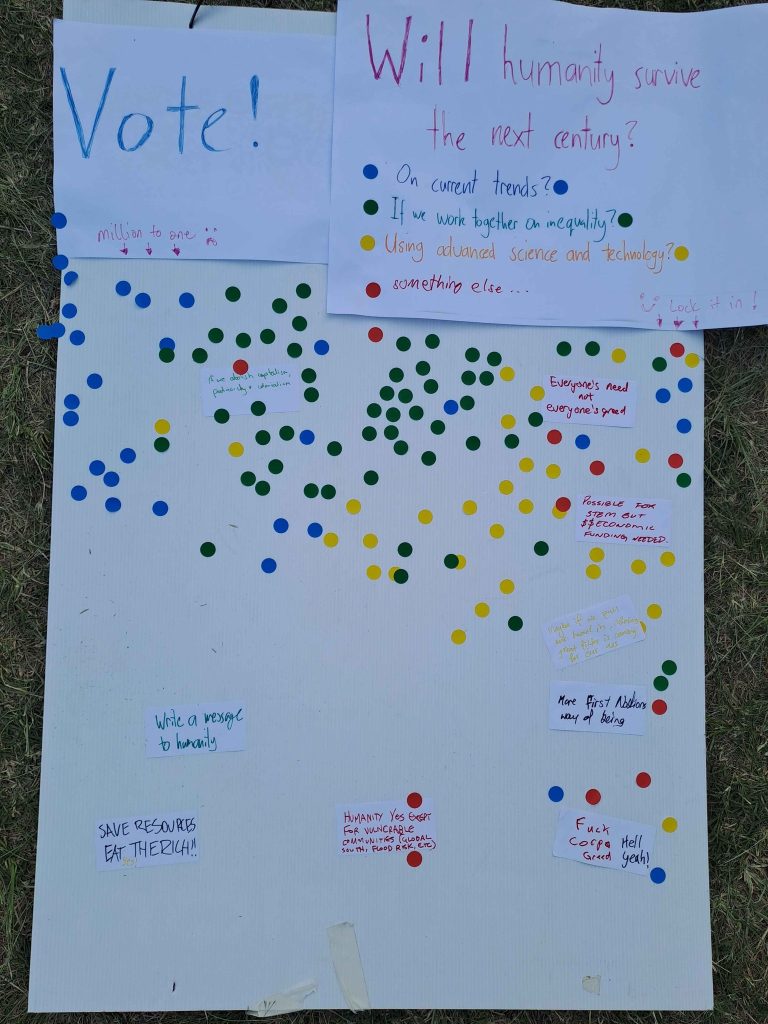 Vote!
million to one
Will humanity survive
the next century?
On current trends?
If we work together on inequality?
Using advanced science and technology?
something else...
Lock it in!
If we abolish capitalism,
patriarchy + colonialism
Everyone's need
not
everyone's greed
Possible for
STEM but
$$economic
funding needed.
Maybe if we
great filter is coming
for our
More First Nations
way of being
Write a message
to humanity
SAVE RESOURCES
EAT THE RICH!!
Humanity yes except
for vulnerable
communities (global
south, flood risk, etc)
Fuck
Corpo Hell
Greed Yeah!